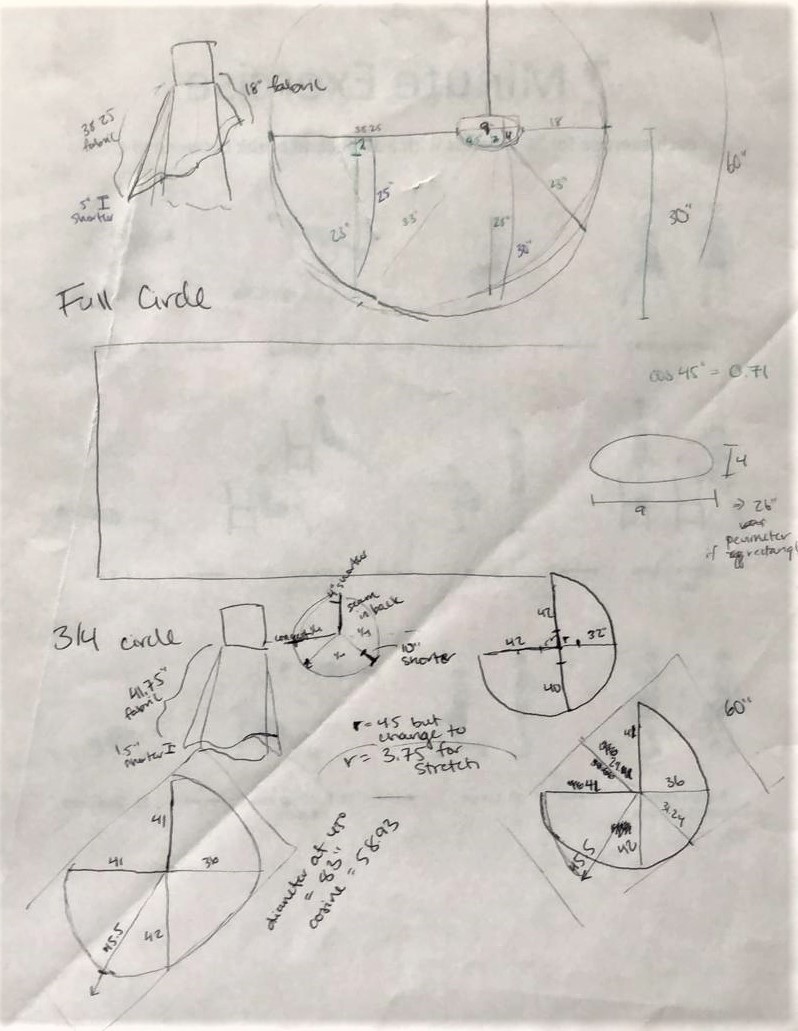 18" fabric
38.25
fabric
5"
shorter
38.25
9
4.5
2
4
18
25"
23"
33"
25"
30"
25"
30"
60"
Full Circle
cos 45° = 0.71
4
9
⇒ 26"
perimeter
if rectangle
3/4 circle
4" shorter
seam
in back
1/4
1/4
10"
shorter
41.75"
fabric
1.5"
shorter
42
42
r
32"
40
r = 4.5 but
change to
r = 3.75 for
stretch
60"
41
41
36
31.24
42
45.5
41
41
36
42
45.5
diameter at 45°
= 83"
cosine = 58.93